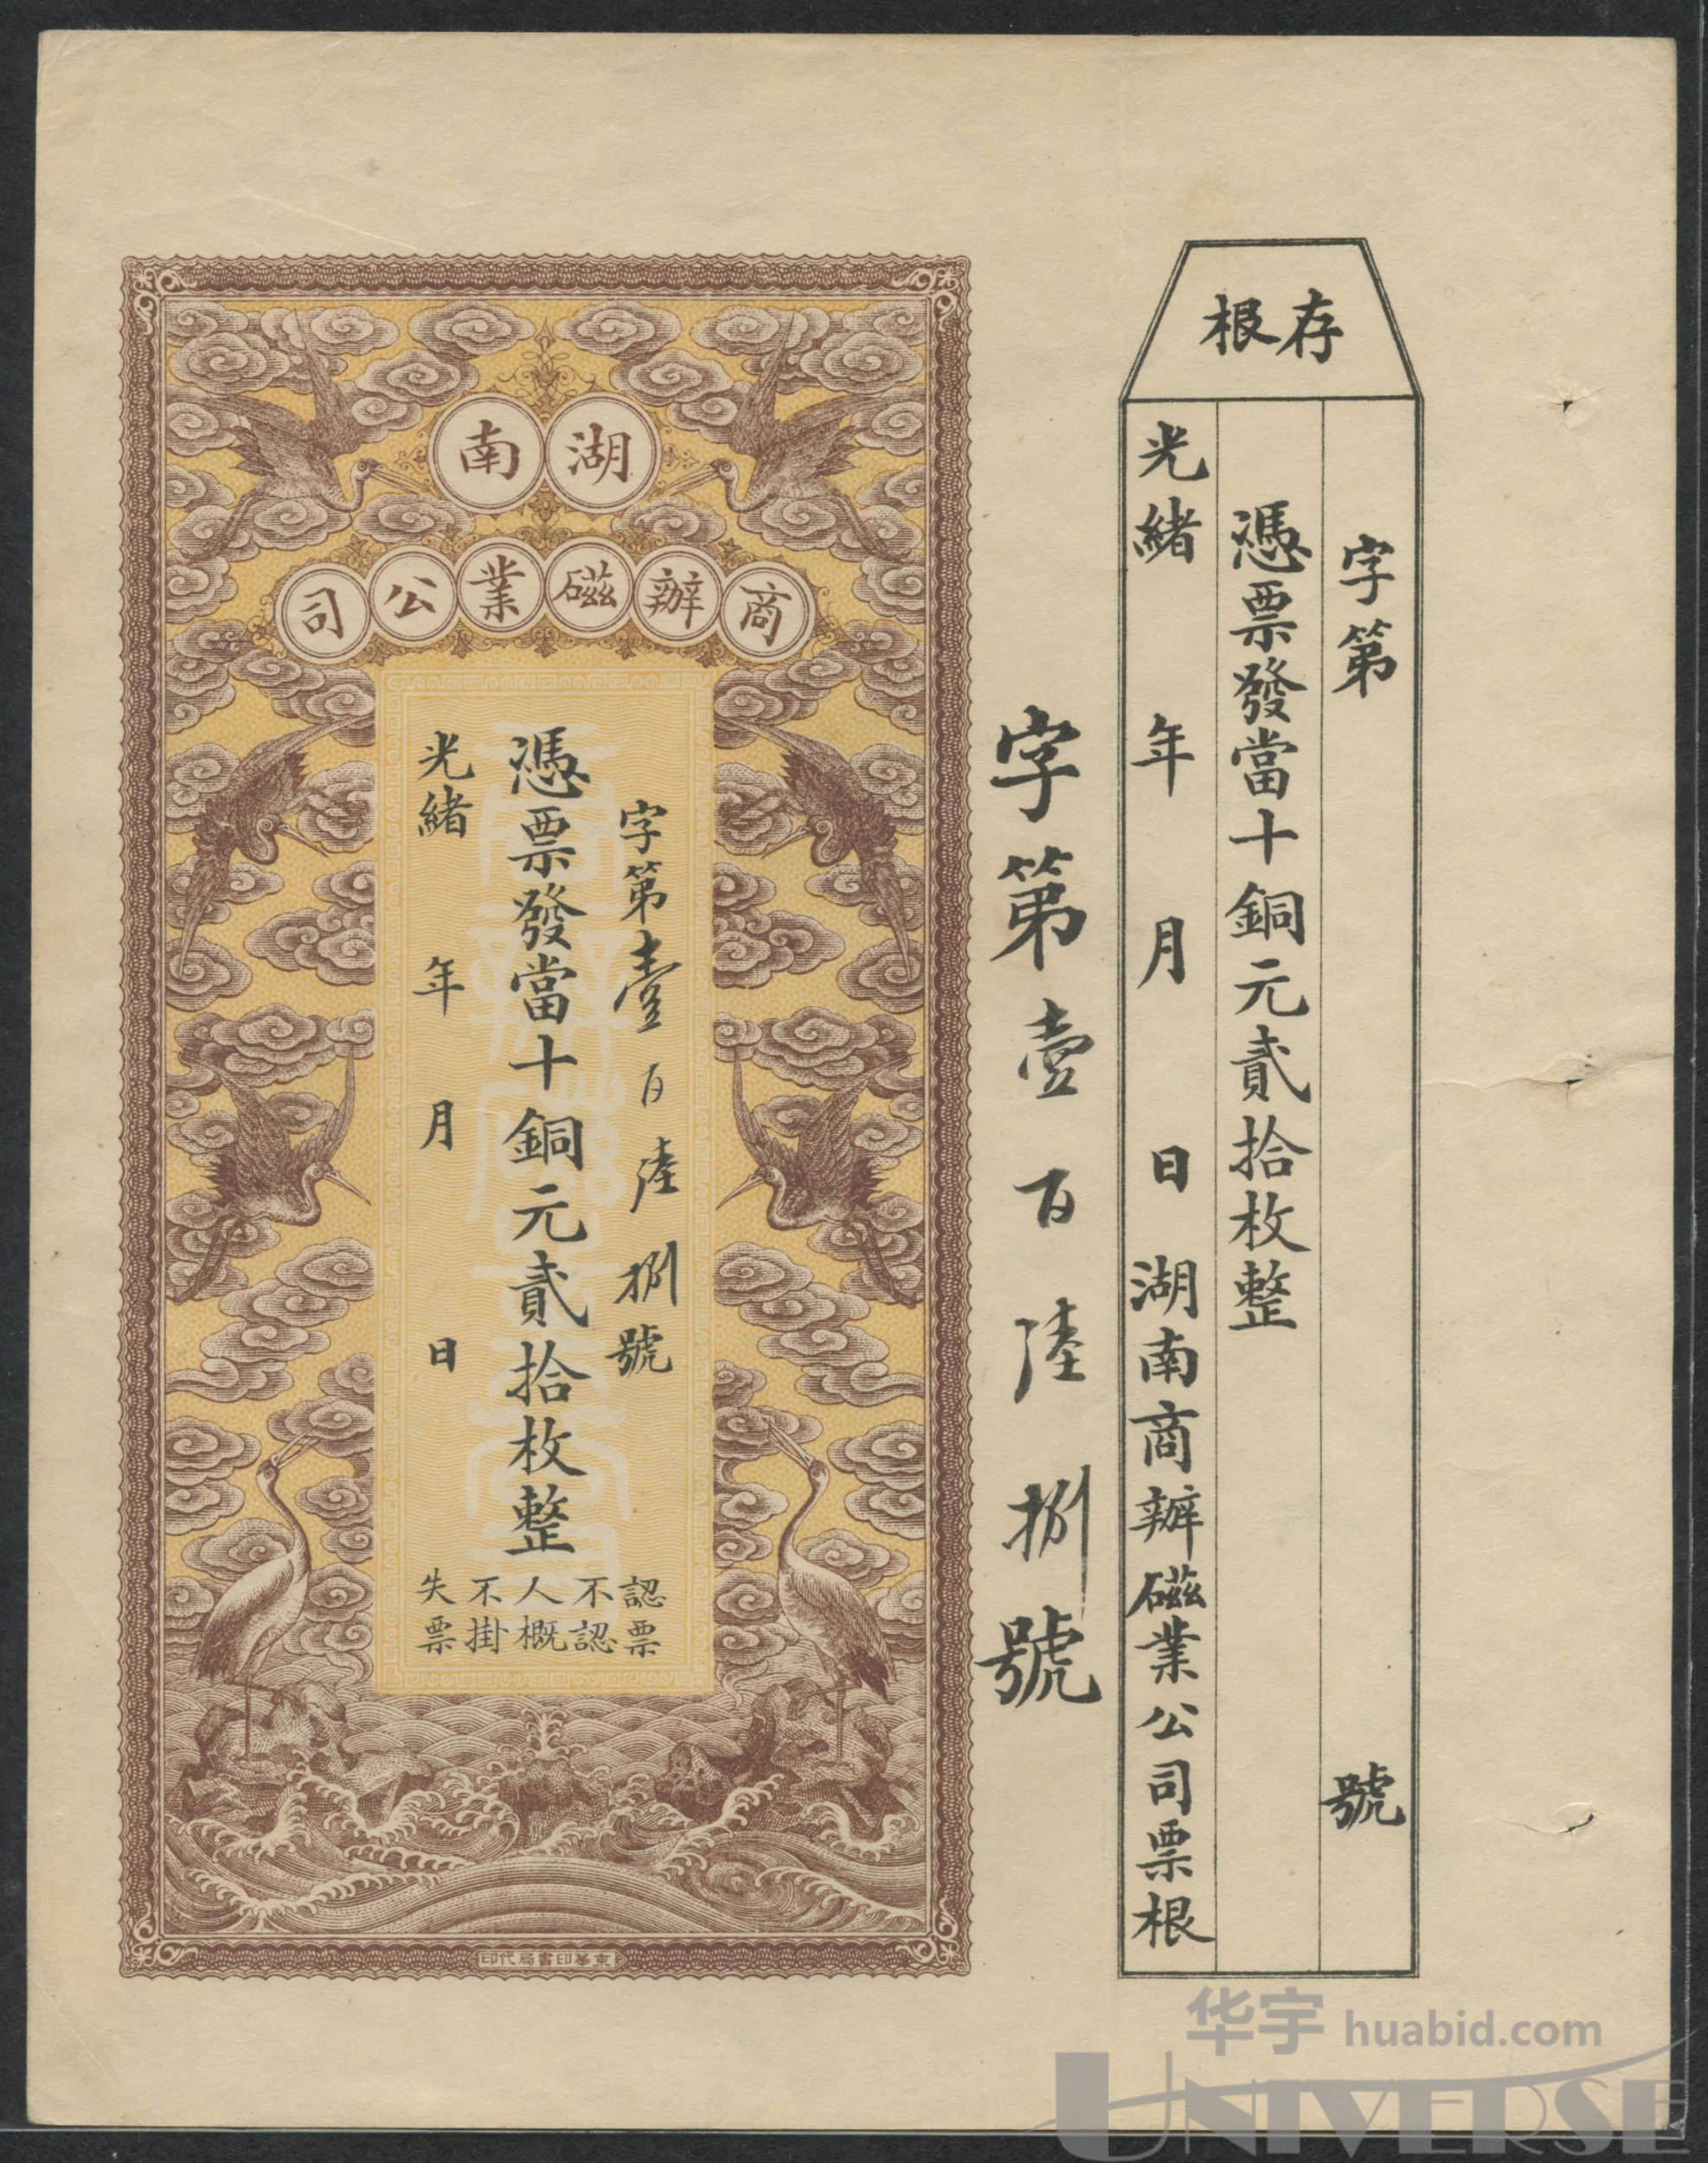 存根
字第 號
憑票發當十銅元貳拾枚整
光緒 年 月 日湖南商辦磁業公司票根
字第壹百陸捌號
湖南
商辦磁業公司
字第壹百陸捌號
憑票發當十銅元貳拾枚整
光緒 年 月 日
認票
不認
人概
不掛
失票
京華印書局代印
华宇 huabid.com
UNIVERSE